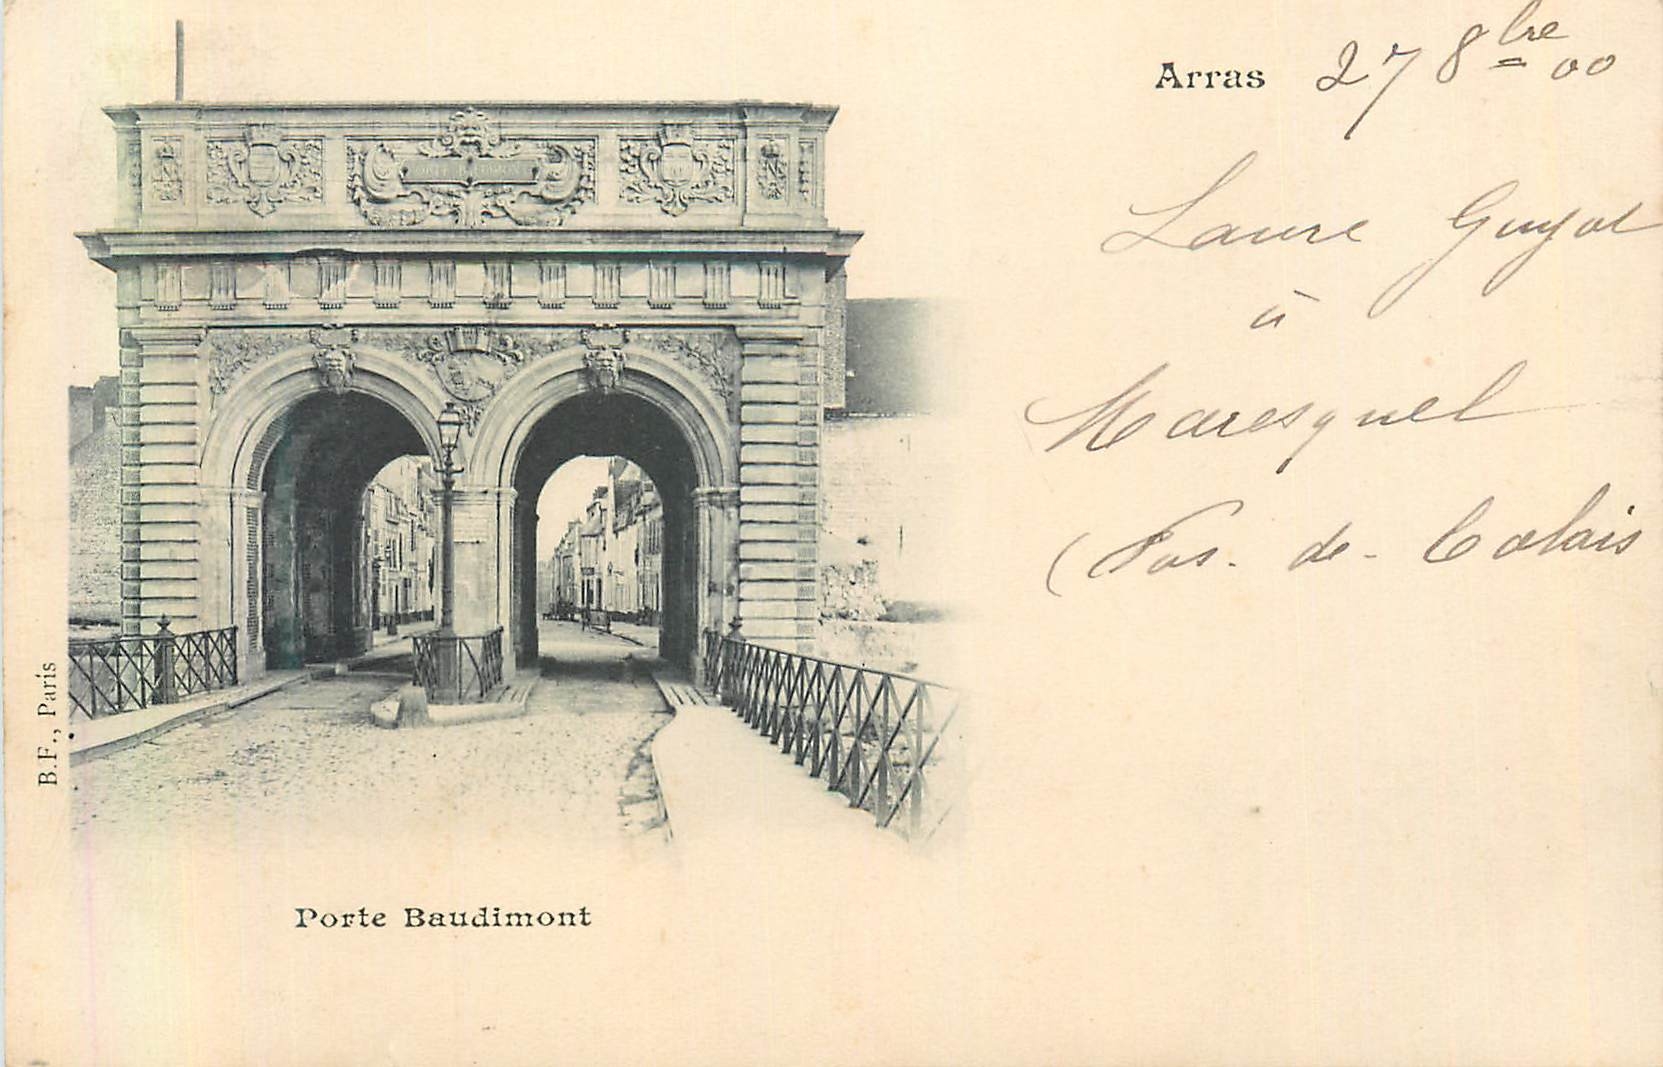 Arras 27 8bre 00
Laure Guyot
à
Maresquel
(Pas-de-Calais
B.F., Paris
Porte Baudimont